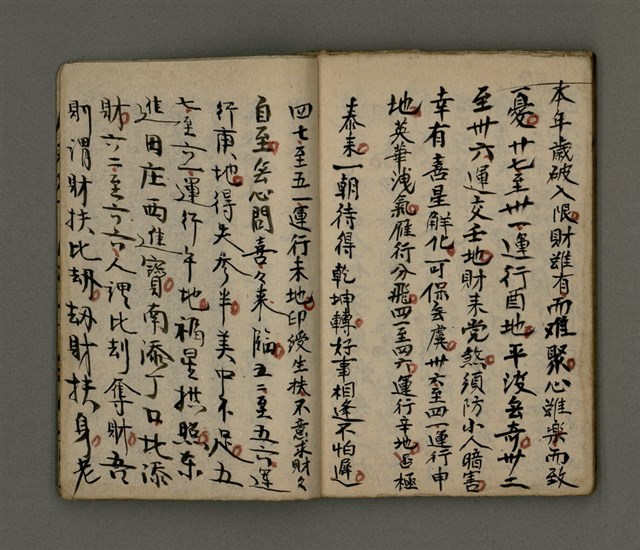 本年歲破入限財雖有而难聚心雖樂而致
憂廿七至卅一運行酉地平波無奇卅二
至卅六運交壬地財来党煞須防小人暗害
幸有喜星解化可保無虞卅六至四一運行申
地英華洩氣雁行分飛四一至四六運行辛地否極
泰来一朝待得乾坤轉好事相逢不怕遲
四七至五一運行未地印绶生扶不意求財々
自至無心問喜々来臨五二至五六運
行庚地得失参半美中不足五
七至六一運行午地福星拱照东
進田庄西進寳南添丁口北添
財六二至六六人谓比刦奪財吾
則谓財扶比刼刼財扶身老